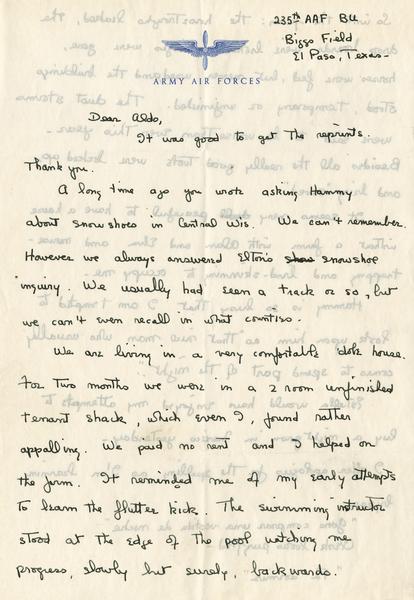 235th AAF BU
Biggs Field
El Paso, Texas -
ARMY AIR FORCES
Dear Aldo,
It was good to get the reprints.
Thank you.
A long time ago you wrote asking Hammy
about snowshoes in Central Wis. We can't remember.
However we always answered Elton's snowshoe
inquiry. We usually had seen a track or so, but
we can't even recall in what counties.
We are living in a very comfortable 'dobe house.
For two months we were in a 2 room unfinished
tenant shack, which even I, found rather
appalling. We paid no rent and I helped on
the farm. It reminded me of my early attempts
to learn the flutter kick. The swimming instructor
stood at the edge of the pool watching me
progress, slowly but surely, backwards.